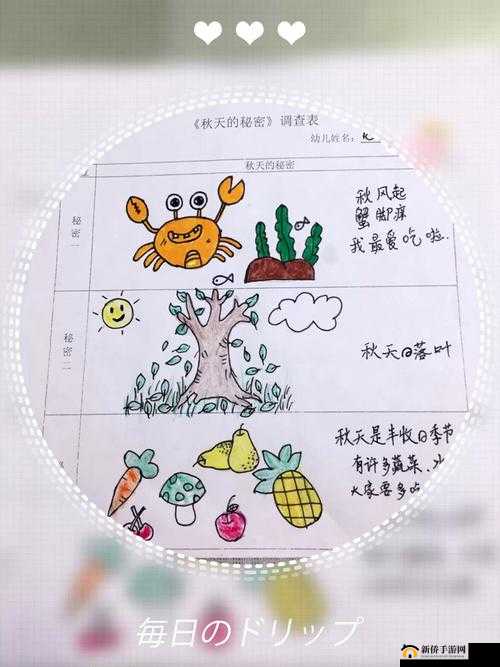 《秋天的秘密》调查表
幼儿姓名：
秋天的秘密
秘密一
秋风起
蟹脚痒
我最爱吃啦.
秘密二
秋天日落叶
秋天是丰收日季节
有许多蔬菜、水
大家要多吃
毎日のドリップ
新侨手游网